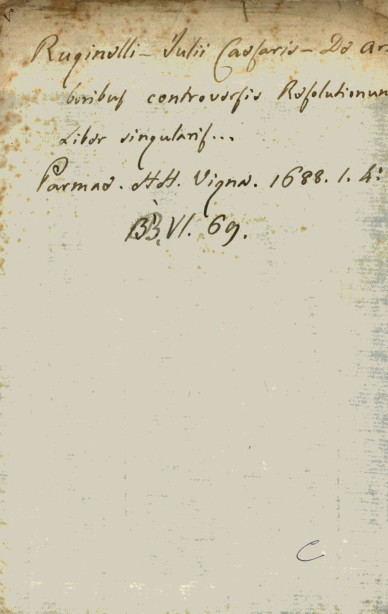 Ruginelli - Iulii Caesaris - De Ar-
boribus controversis Resolutionum
Liber singularis...
Parmae. HH. Vigna. 1688. 1. 4:
BB. VI. 69.
C